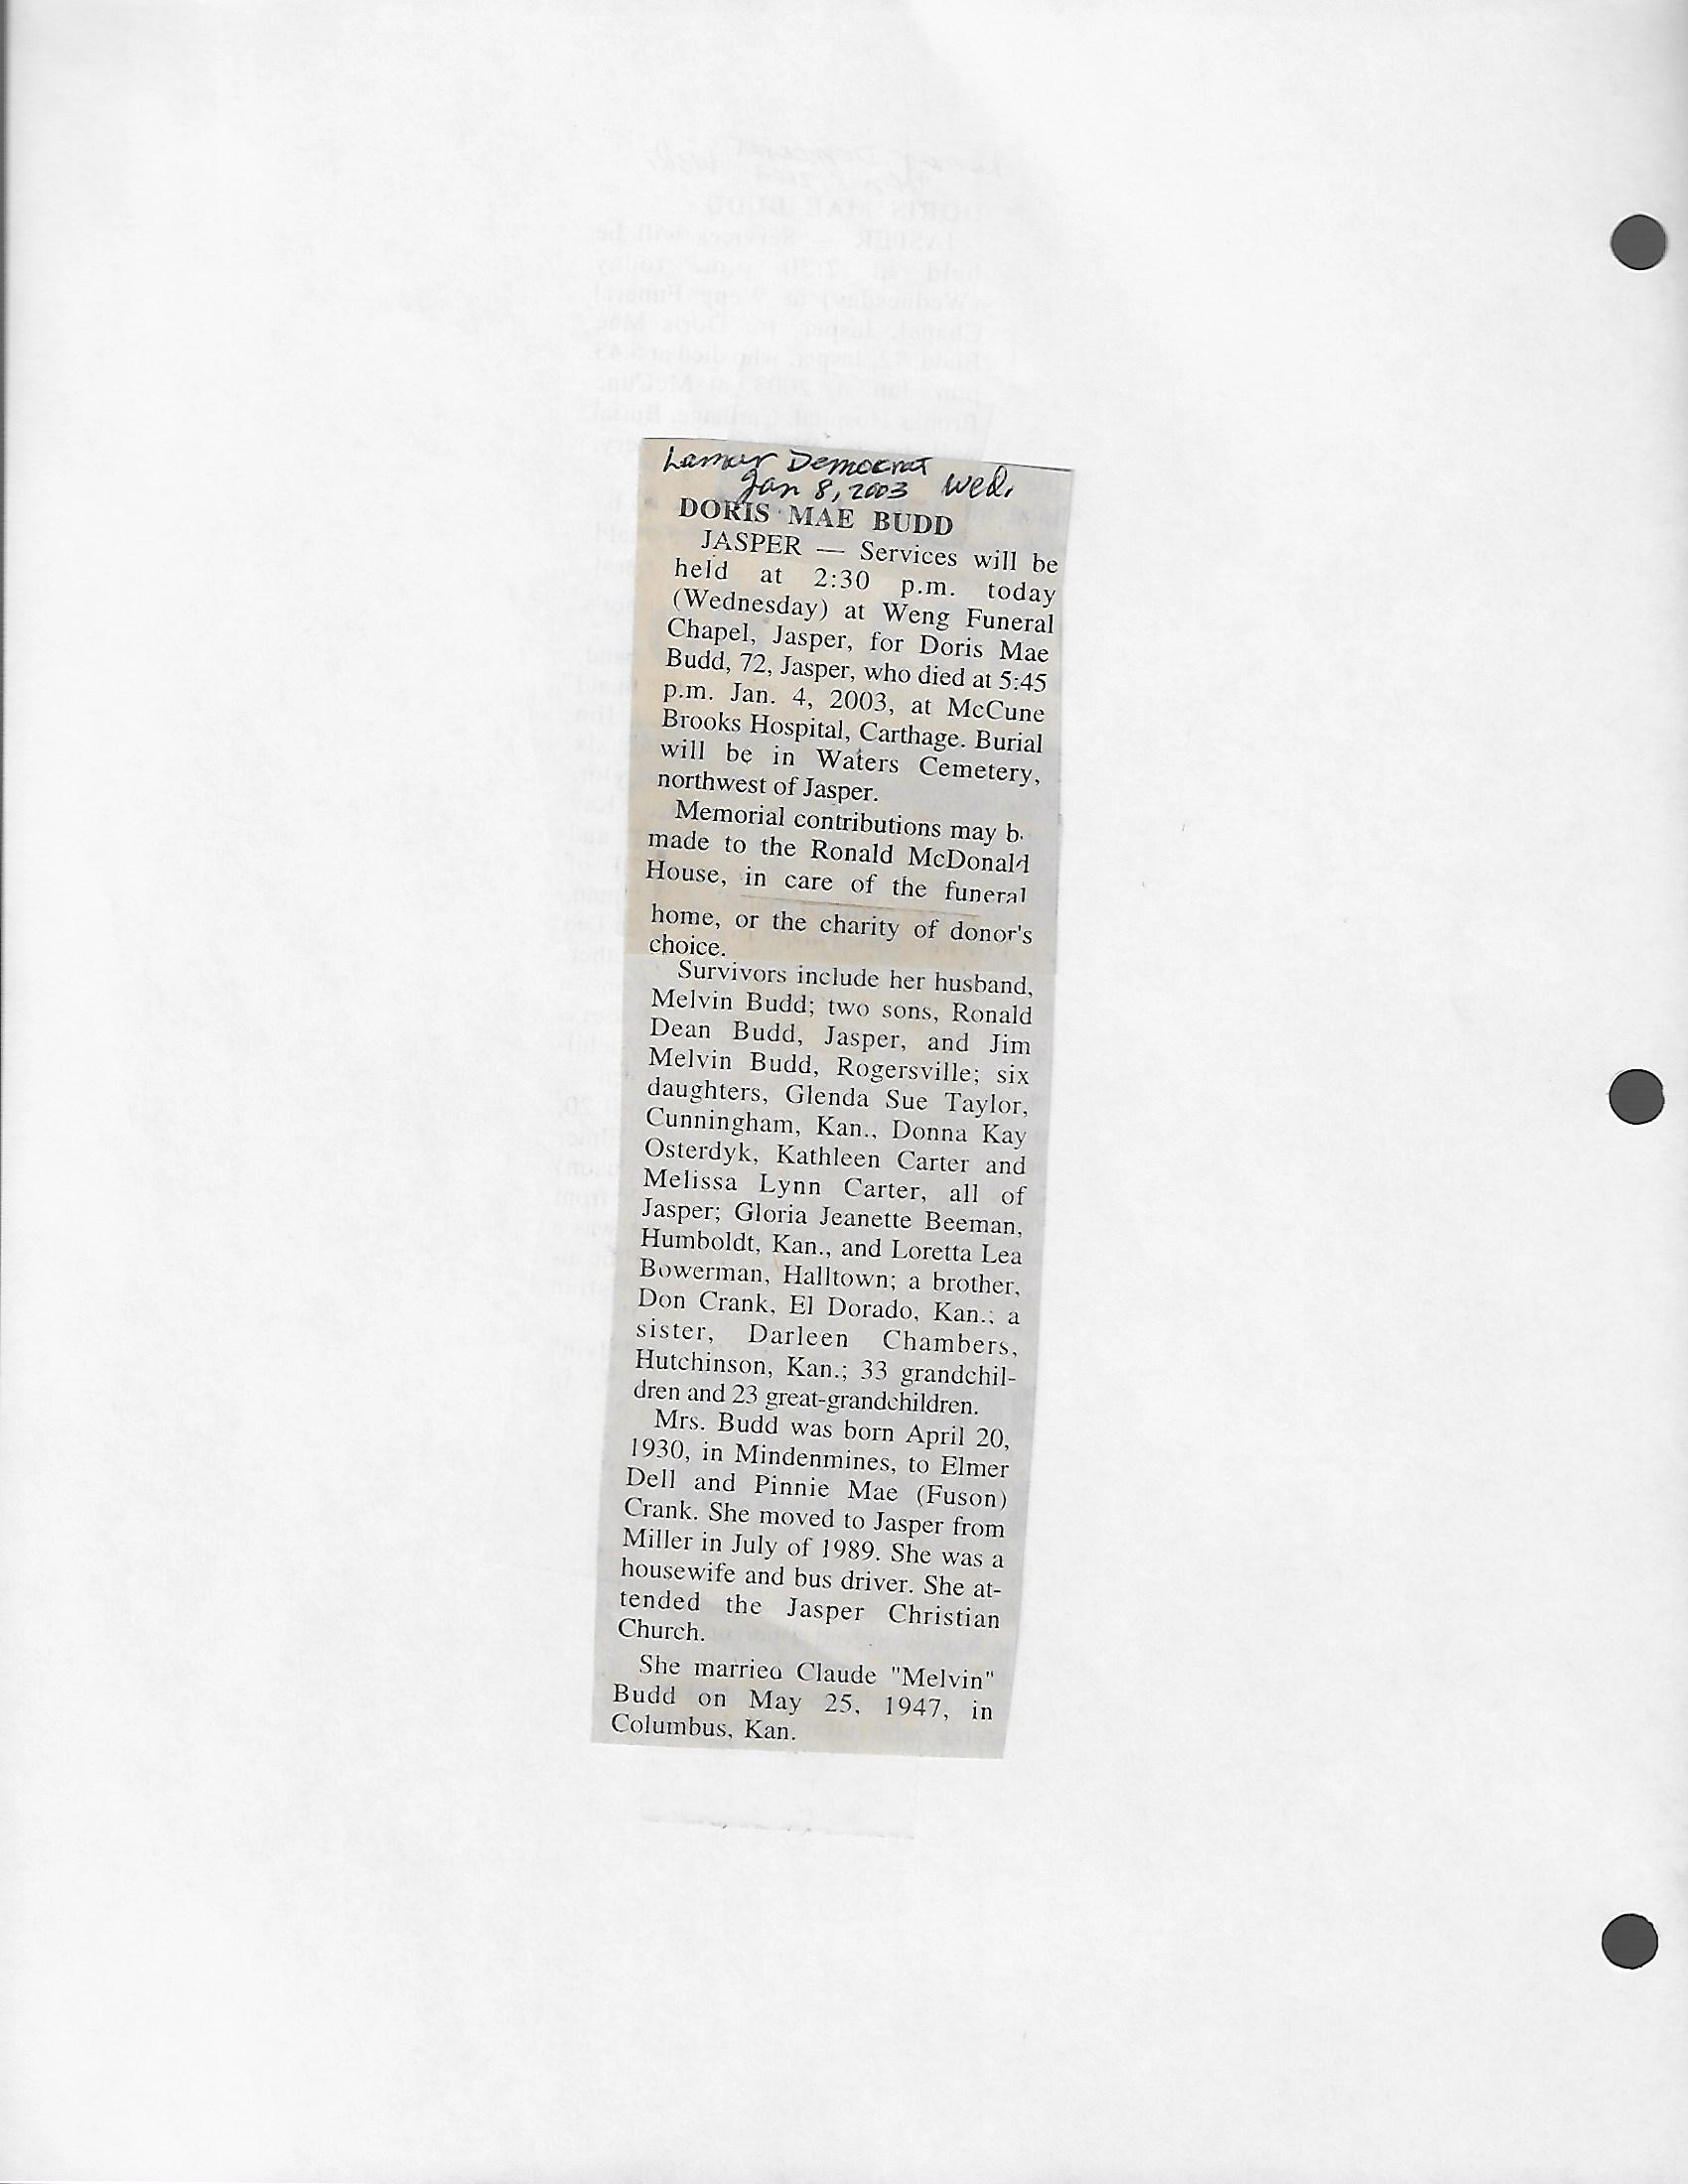 Lamar Democrat
Jan 8, 2003 Wed.
DORIS MAE BUDD
JASPER — Services will be
held at 2:30 p.m. today
(Wednesday) at Weng Funeral
Chapel, Jasper, for Doris Mae
Budd, 72, Jasper, who died at 5:45
p.m. Jan. 4, 2003, at McCune
Brooks Hospital, Carthage. Burial
will be in Waters Cemetery,
northwest of Jasper.
Memorial contributions may b
made to the Ronald McDonald
House, in care of the funeral
home, or the charity of donor's
choice.
Survivors include her husband,
Melvin Budd; two sons, Ronald
Dean Budd, Jasper, and Jim
Melvin Budd, Rogersville; six
daughters, Glenda Sue Taylor,
Cunningham, Kan., Donna Kay
Osterdyk, Kathleen Carter and
Melissa Lynn Carter, all of
Jasper; Gloria Jeanette Beeman,
Humboldt, Kan., and Loretta Lea
Bowerman, Halltown; a brother,
Don Crank, El Dorado, Kan.; a
sister, Darleen Chambers,
Hutchinson, Kan.; 33 grandchil-
dren and 23 great-grandchildren.
Mrs. Budd was born April 20,
1930, in Mindenmines, to Elmer
Dell and Pinnie Mae (Fuson)
Crank. She moved to Jasper from
Miller in July of 1989. She was a
housewife and bus driver. She at-
tended the Jasper Christian
Church.
She married Claude "Melvin"
Budd on May 25, 1947, in
Columbus, Kan.